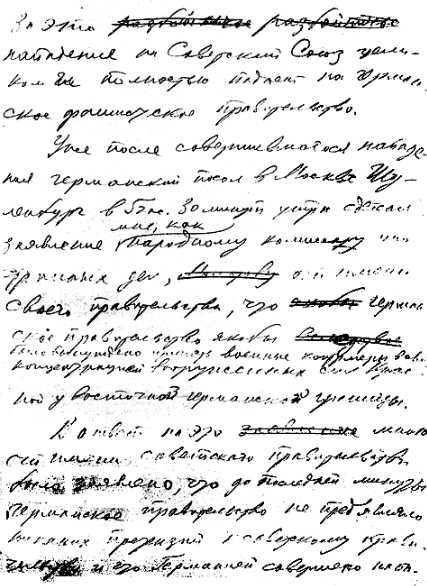 За это разбойничье разбойничье
нападение на Советский Союз цели-
ком и полностью падает на герман
ское фашистское правительство.
Уже после совершившегося нападе-
ния германский посол в Москве Шу-
ленбург в 5 час. 30 минут утра сделал
мне, как
заявление народному комиссару ино
странных дел, от имени
своего правительства, что якобы герман
ское правительство якобы
было вынуждено начать военные контрмеры в связи
концентрацией вооруженных сил Крас
ной у восточной германской границы.
В ответ на это заявление мною
от имени советского правительства
было заявлено, что до последней минуты
германское правительство не предъявляло
никаких претензий к советскому прави
и что Германией совершено напа-